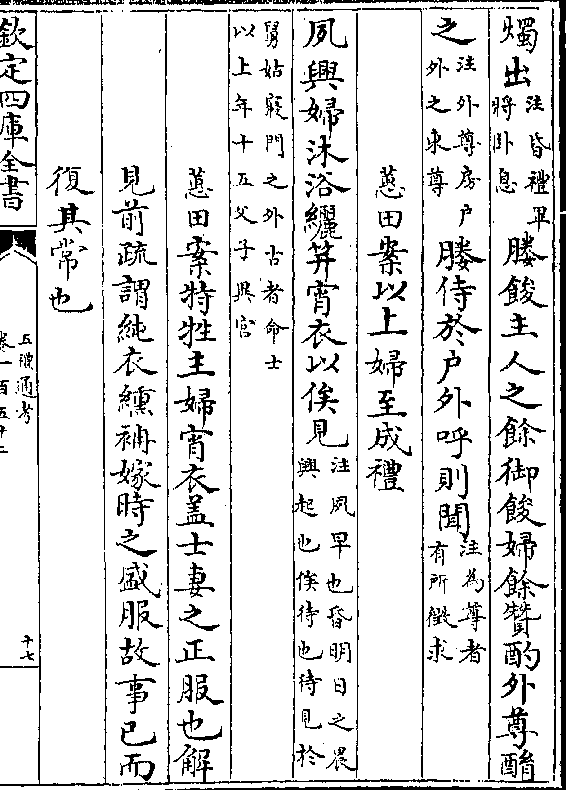 燭出注昏禮畢將卧息媵餕主人之餘御餕婦餘贊酌外尊酳
之注外尊房户外之東尊媵侍於户外呼則聞注為尊者有所徵求
蕙田案以上婦至成禮
夙興婦沐浴纚笄宵衣以俟見注夙早也昏明日之晨興起也俟待也待見於
舅姑寢門之外古者命士以上年十五父子異宫
蕙田案特牲主婦宵衣盖士妻之正服也解
見前疏謂純衣纁袡嫁時之盛服故事已而
復其常也
欽定四庫全書
五禮通考
卷一百五十二
十七